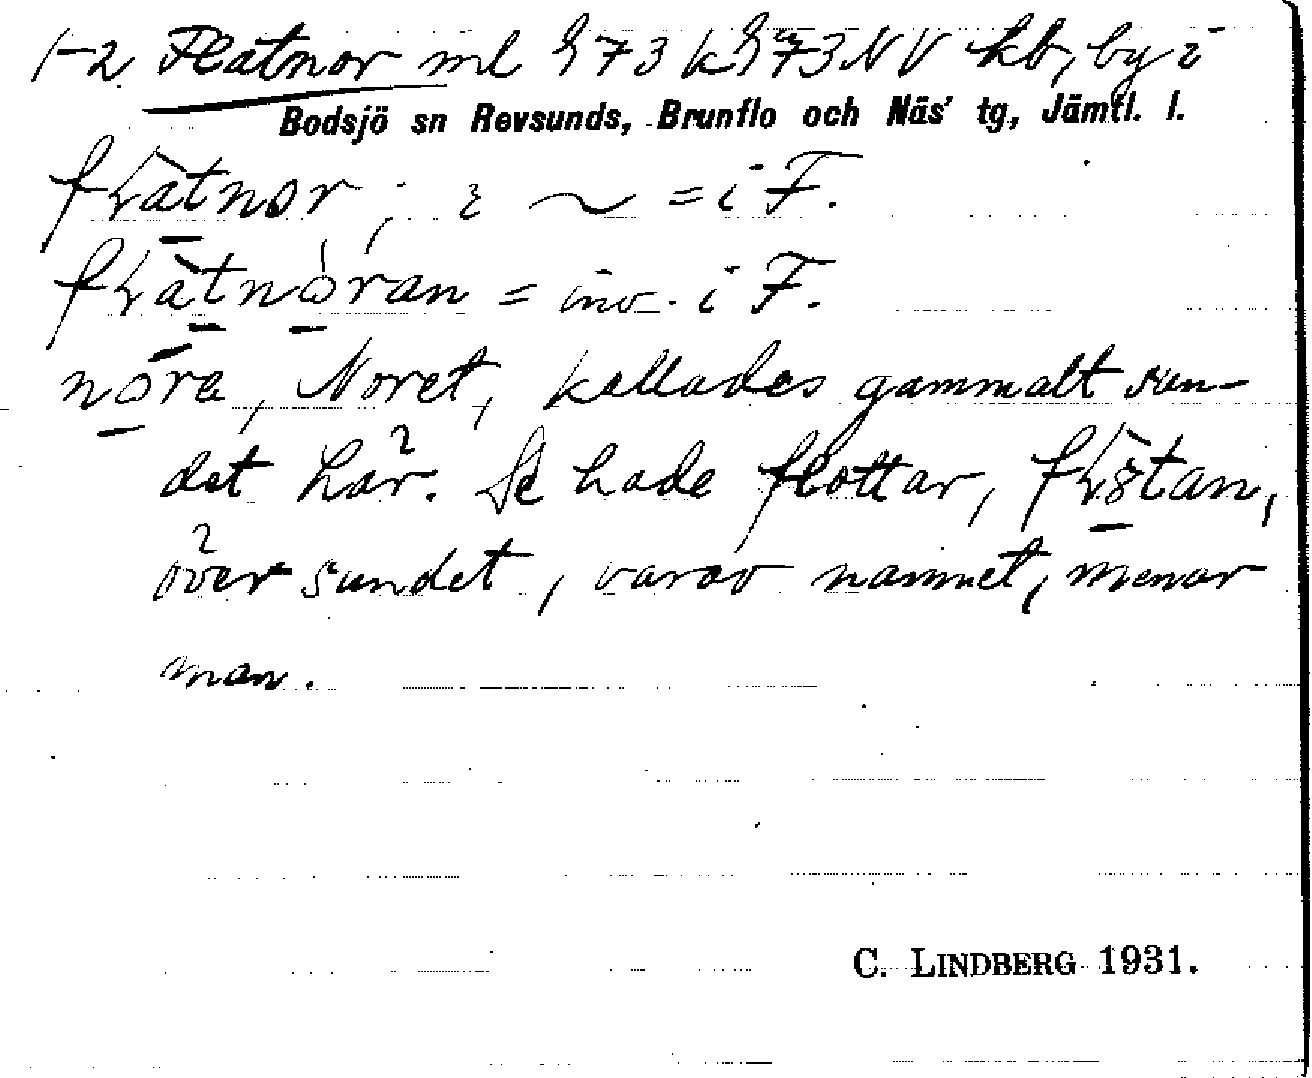 1-2 Flatnor ml § 73 k § 73 NV kb, by i
Bodsjö sn Revsunds, Brunflo och Näs' tg, Jämtl. l.
i ~ = i F.
= inv. i F.
Noret, kallades gammalt sun-
det här. De hade flottar,
över sundet, varav namnet, menar
man.
C. LINDBERG 1931.